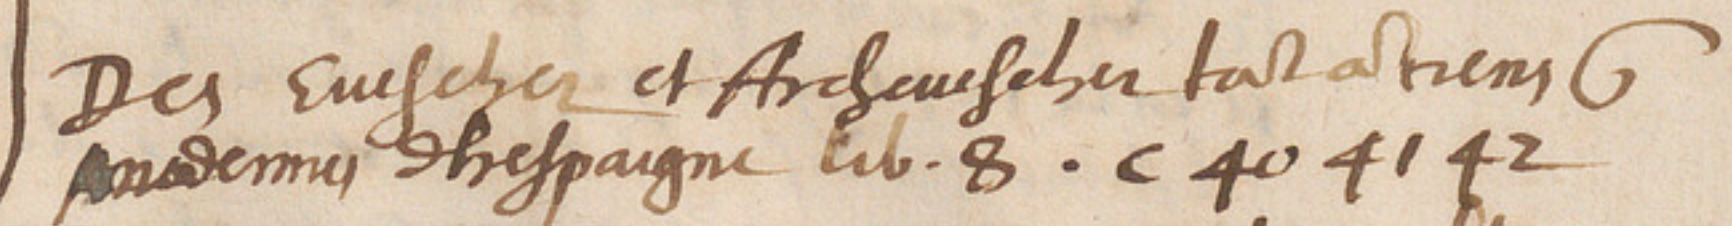 Des Eueschez et Archeueschez tāt āctiens q̄
modernes dhespaigne lib. 8 . c 40 41 42